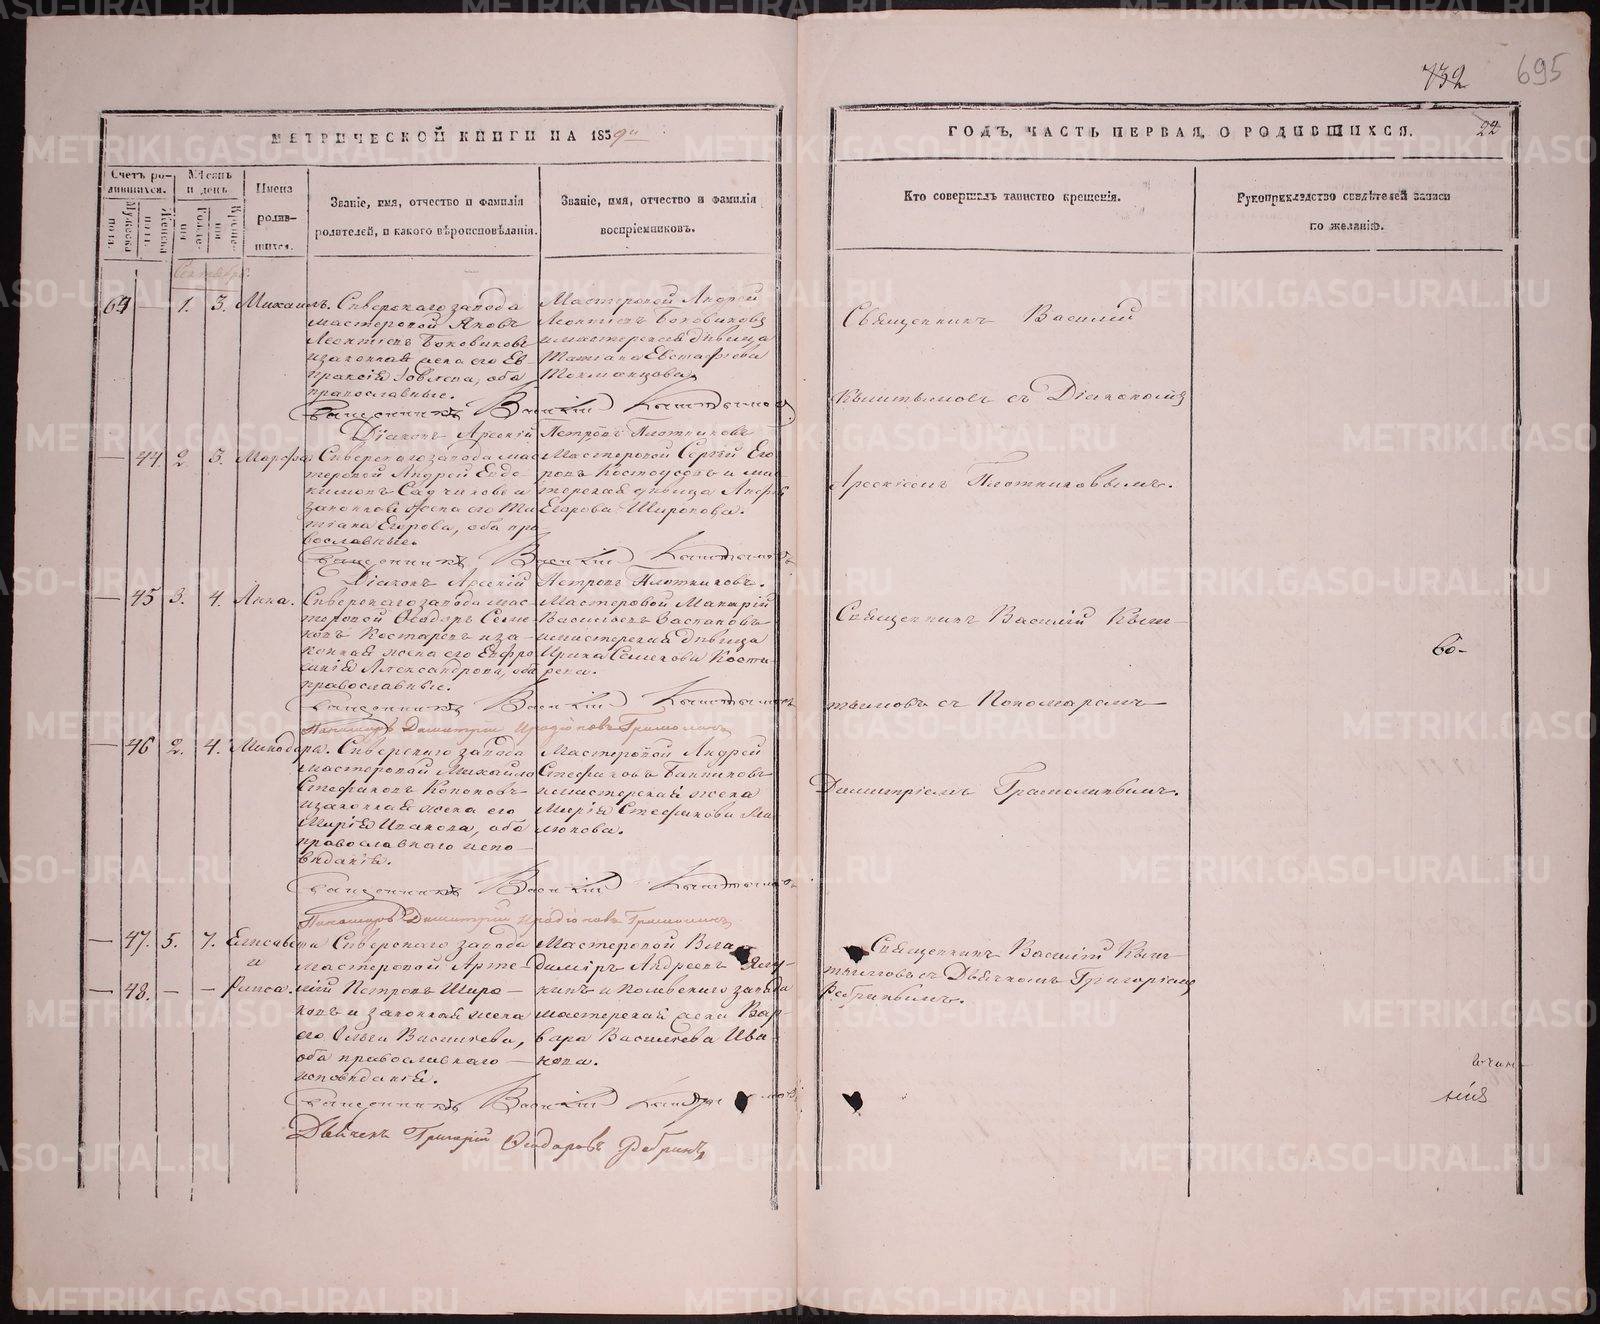 732 695
МЕТРИЧЕСКОЙ КНИГИ НА 1859й
ГОДЪ, ЧАСТЬ ПЕРВАЯ, О РОДИВШИХСЯ. 22
Счетъ ро-
дившихся.
Мужеска
пола.
Женска
пола.
Мѣсяцъ
и день
Рожде-
нія
Креще-
нія
Имена
родив-
шихся.
Званіе, имя, отчество и фамилія
родителей, и какого вѣроисповѣданія.
Званіе, имя, отчество и фамилія
воспріемниковъ.
Кто совершалъ таинство крещенія.
Рукоприкладство свидѣтелей записи
по желанію.
Сентябрь.
64 — 1. 3. Михаилъ.
Сѣверскаго завода
мастеровой Яковъ
Леонтіевъ Боковиковъ
и законная жена его Ев
праксія Іовлева, оба
православные.
Мастеровой Андрей
Леонтіевъ Боковиковъ
и мастерская дѣвица
Татіана Евстафіева
Священникъ Василій
Кыштымовъ съ Діакономъ
Арсеніемъ Плотниковымъ.
Священникъ Василій Кыштымовъ
Діаконъ Арсеній Петровъ Плотниковъ
— 44 2 3. Марфа
Сѣверскаго завода мас
теровой Андрей Евдо-
кимовъ Садчиковъ и
законная жена его Та
тіана Егорова, оба пра
вославные.
Мастеровой Сергѣй Его
ровъ Костоусовъ и мас
терская дѣвица
Егорова Широкова.
Священникъ Василій Кыштымовъ
Діаконъ Арсеній Петровъ Плотниковъ.
— 45 3. 4. Анна.
Сѣверскаго завода мас-
теровой Ѳеодоръ Семе
новъ Костаревъ и за-
конная жена его Евфро
синія Александрова, оба
православные.
Мастеровой
Васильевъ
и мастерская дѣвица
Ирина Семенова Коста
рева.
Священникъ Василій Кыш-
тымовъ съ Пономаремъ
Димитріемъ Грамолинымъ.
Священникъ Василій Кыштымовъ
Пономарь Димитрій Иродіоновъ Грамолинъ
— 46 2. 4. Минодора.
Сѣверскаго завода
мастеровой Михайло
Стефановъ Кононовъ
и законная жена его
Марія Иванова, оба
православнаго испо-
вѣданія.
Мастеровой Андрей
Стефановъ Банниковъ
и мастерская жена
Марія Стефанова Ма
люкова.
Священникъ Василій Кыштымовъ
Пономарь Димитрій Иродіоновъ Грамолинъ
— 47. 5. 7. Елисавета
и
— 48. — — Раиса.
Сѣверскаго завода
мастеровой Арте-
мій Петровъ Широ-
ковъ и законная жена
его Ольга Васильева,
оба православнаго
исповѣданія.
Мастеровой Вла-
димiръ Андреевъ
и Полевскаго завода
мастерская жена Вар-
вара Васильева Ива-
нова.
Священникъ Василій Кыш
тымовъ съ Дьячкомъ Григоріемъ
Ребринымъ.
Священникъ Василій Кыштымовъ
Дьячекъ Григорій Ѳеодоровъ Ребринъ
во-